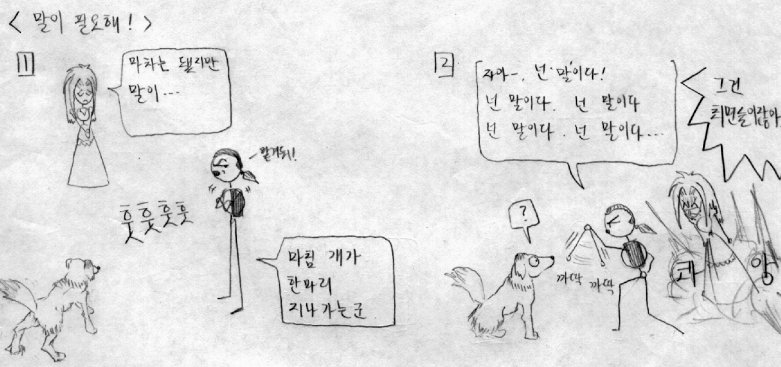 < 말이 필요해! >
1
마차는 됐지만
말이...
맡겨둬!
훗훗훗훗
마침 개가
한마리
지나가는군.
2
자아-. 넌 말이다!
넌 말이다. 넌 말이다
넌 말이다. 넌 말이다...
그건
최면술이잖아
?
까딱 까딱
콰앙